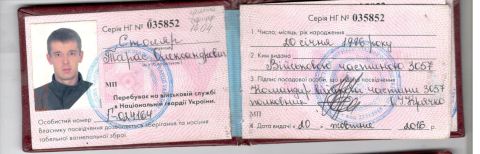 Серія НГ № 035852
Столяр
Тарас Олександрович
МП
Перебуває на військовій службі
в Національній гвардії України.
Особистий номер
Власнику посвідчення дозволяється зберігання та носіння
табельної вогнепальної зброї.
Серія НГ № 035852
1. Число, місяць, рік народження
20 січня 1996 року
2. Ким видано
Військовою частиною 3057
3. Підпис посадової особи, що видала посвідчення
Командир військової частини 3057
полковник
МП
4. Дата видачі « 20 » жовтня 2016 р.